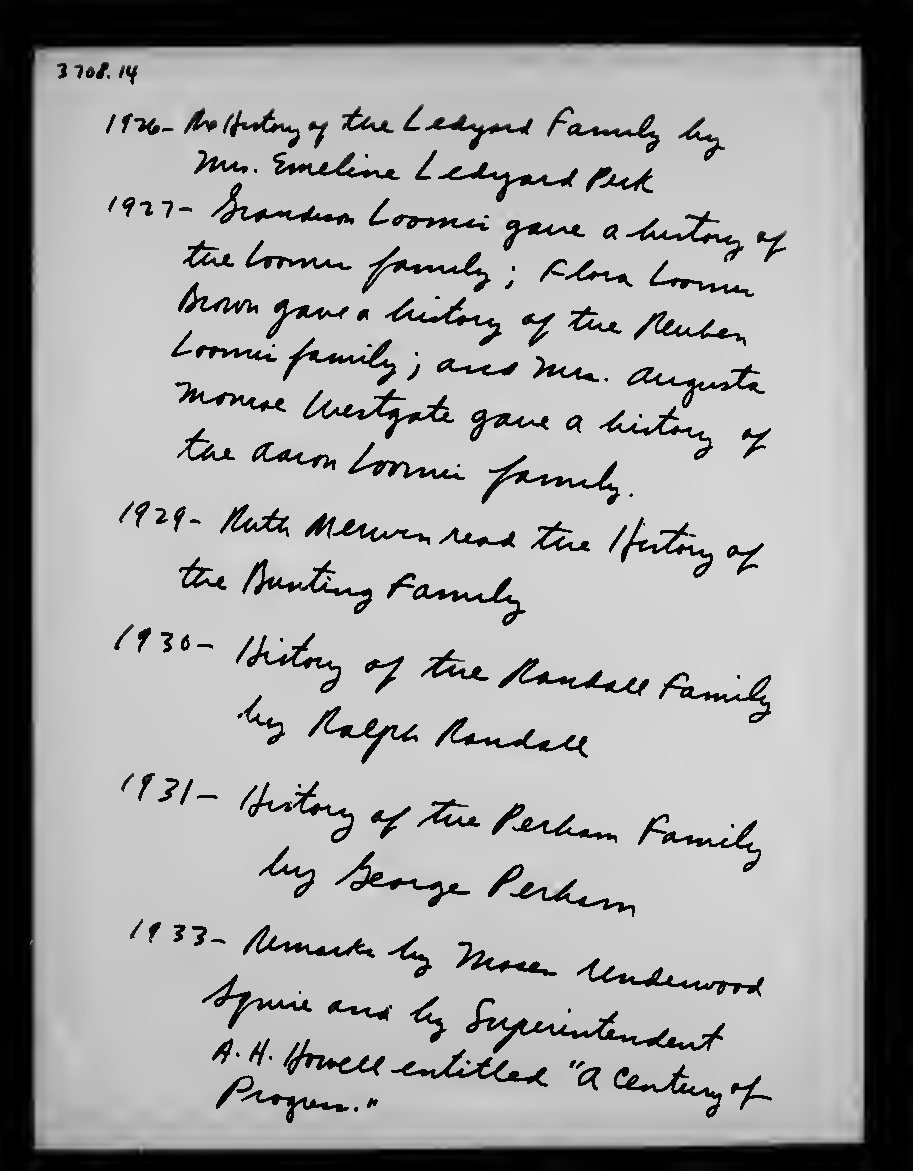 3708.14
1926- The History of the Ledyard Family by
Mrs. Emeline Ledyard Peck
1927- Grandison Loomis gave a history of
the Loomis family; Flora Loomis
Brown gave a history of the Reuben
Loomis family; and Mrs. Augusta
Monroe Westgate gave a history of
the Aaron Loomis family.
1929- Ruth Merwin read the History of
the Bunting Family
1930- History of the Randall Family
by Ralph Randall
1931- History of the Perham Family
by George Perham
1933- Remarks by Moses Underwood
Squire and by Superintendent
A. H. Howell entitled "A Century of
Progress."